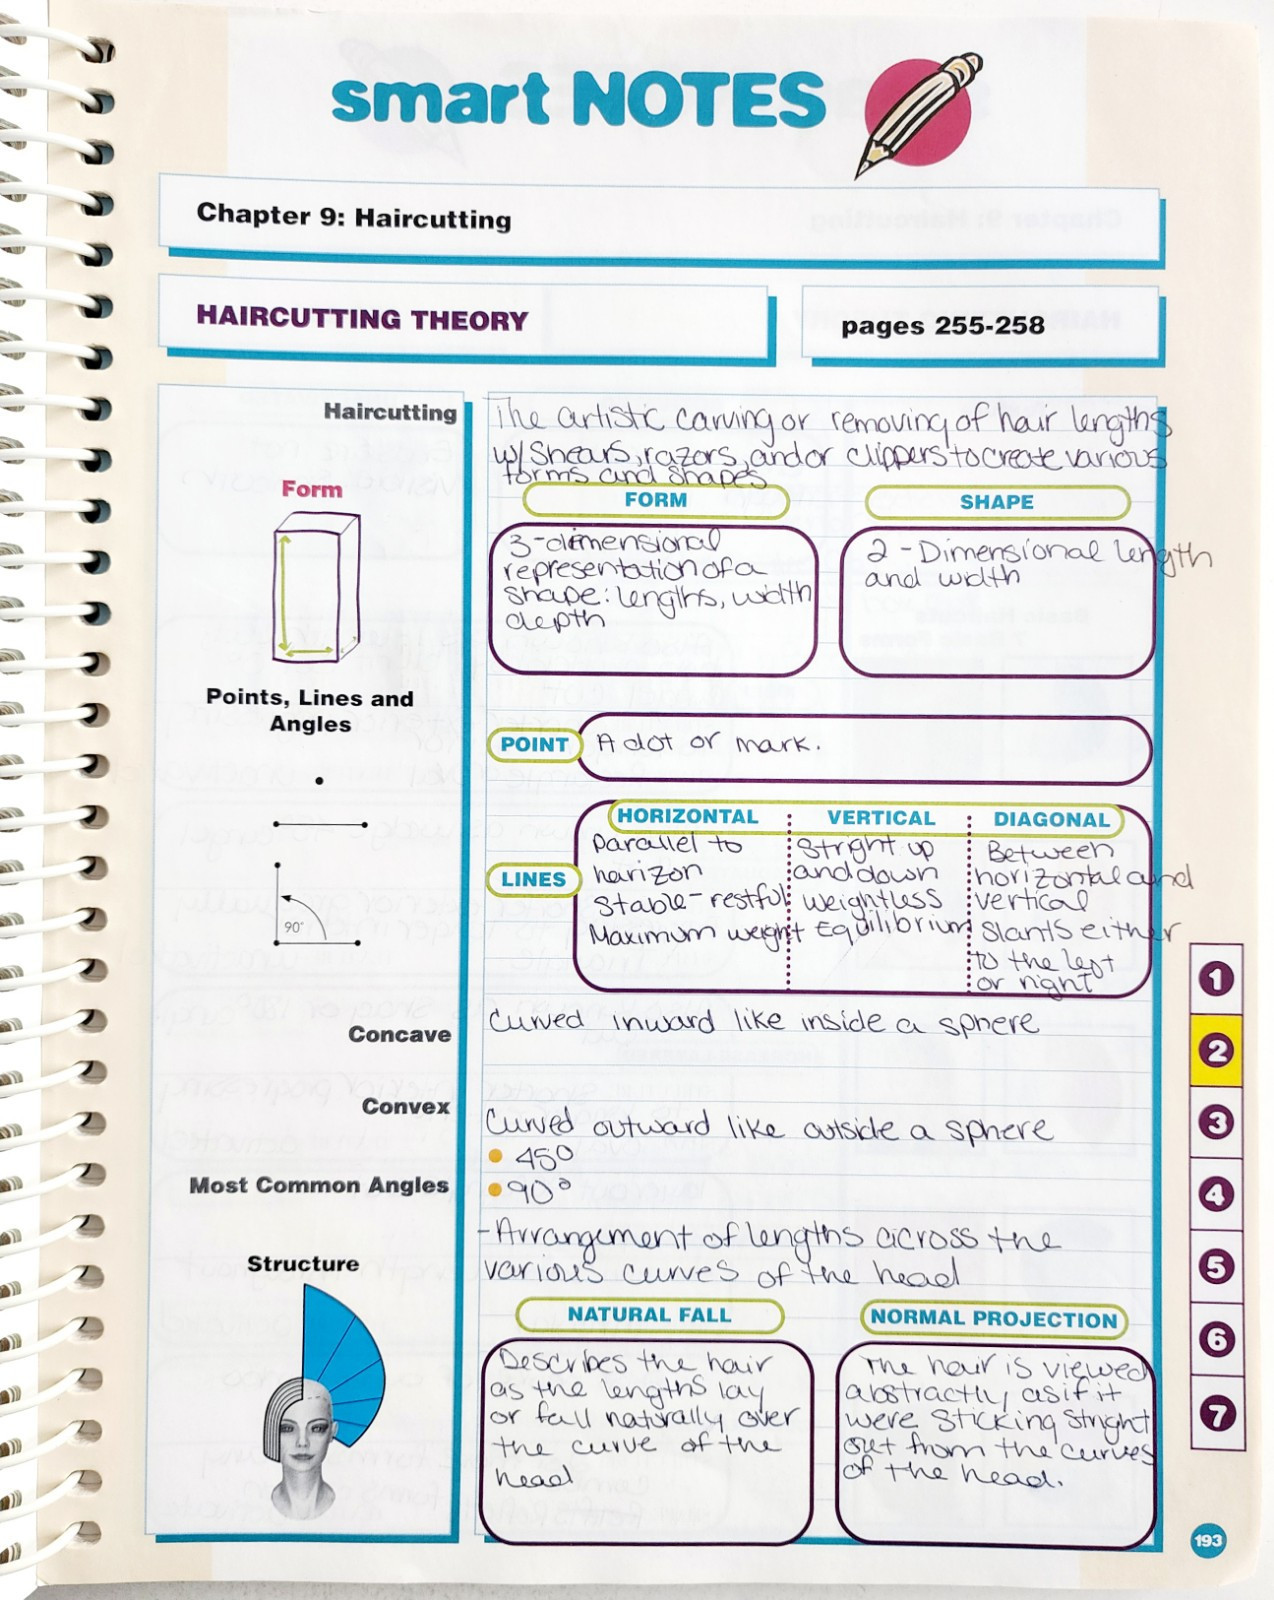 smart NOTES
Chapter 9: Haircutting
HAIRCUTTING THEORY
pages 255-258
Haircutting
The artistic carving or removing of hair lengths
w/ shears, razors, and or clippers to create various
forms and shapes
Form
FORM
3-dimensional
representation of a
shape: lengths, width
depth
SHAPE
2 - Dimensional length
and width
Points, Lines and
Angles
90°
POINT
A dot or mark.
LINES
HORIZONTAL
Parallel to
harizon
Stable - restful
Maximum weight
VERTICAL
Stright up
and down
weightless
Equilibrium
DIAGONAL
Between
horizontal and
vertical
Slants either
to the left
or right
Concave
Curved inward like inside a sphere
Convex
Curved outward like outside a sphere
Most Common Angles
• 45°
• 90°
Structure
- Arrangement of lengths across the
various curves of the head
NATURAL FALL
Describes the hair
as the lengths lay
or fall naturally over
the curve of the
head
NORMAL PROJECTION
The hair is viewed
abstractly as if it
were sticking stright
out from the curves
of the head.
1
2
3
4
5
6
7
193